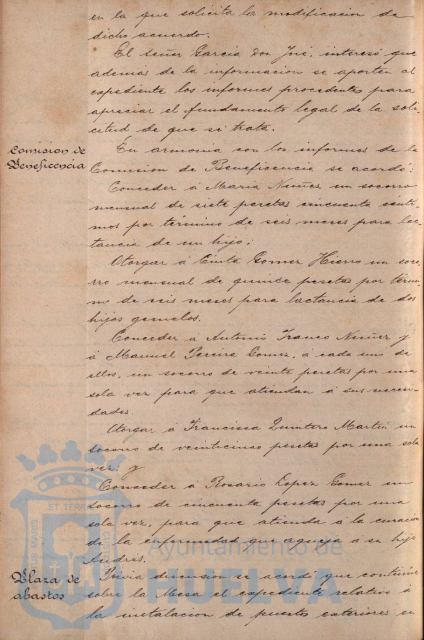 en la que solicita la modificacion de
dicho acuerdo.
El señor Garcia Don José, interesó que
ademas de la informacion se aporten al
expediente los informes procedentes para
apreciar el fundamento legal de la soli-
citud de que se trata.
Comision de
Beneficencia
En armonia con los informes de la
Comision de Beneficencia se acordó:
Conceder á Maria Nuñez un socorro
mensual de siete pesetas cincuenta centi-
mos por término de seis meses para lac-
tancia de un hijo;
Otorgar á Gomez Hierro un soco-
rro mensual de quince pesetas por térmi-
no de seis meses para lactancia de dos
hijos gemelos.
Conceder á Antonio Franco Nuñez y
á Manuel Pereira Gomez, á cada uno de
ellos, un socorro de veinte pesetas por una
sola vez para que atiendan á sus necesi-
dades
Otorgar á Francisca Quintero Martin un
socorro de veinticinco pesetas por una sola
vez: y
Conceder á Rosario Lopez Gomez un
socorro de cincuenta pesetas por una
sola vez, para que atienda á la curacion
de la enfermedad que aqueja á su hijo
Andrés.
Plaza de
abastos
Prévia discusion se acordó que continúe
sobre la Mesa el expediente relativo á
la instalacion de puestos exteriores en
Ayuntamiento de
HUELVA